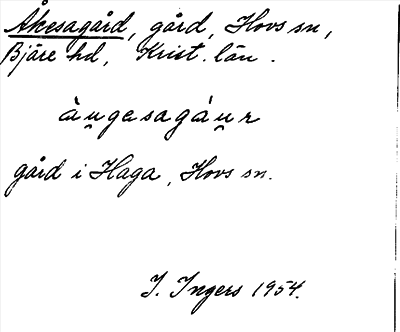 Åkesagård, gård, Hovs sn,
Bjäre hd, Krist. län.
àu̯gesagáu̯r
gård i Haga, Hovs sn.
I. Ingers 1954.